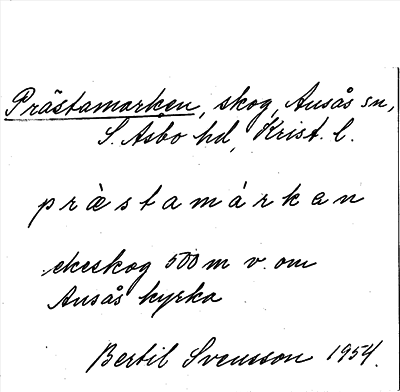 Prästamarken, skog, Ausås sn,
S. Åsbo hd, Krist. l.
præ̀stamárkɛn
ekeskog 500 m v. om
Ausås kyrka
Bertil Svensson 1954.